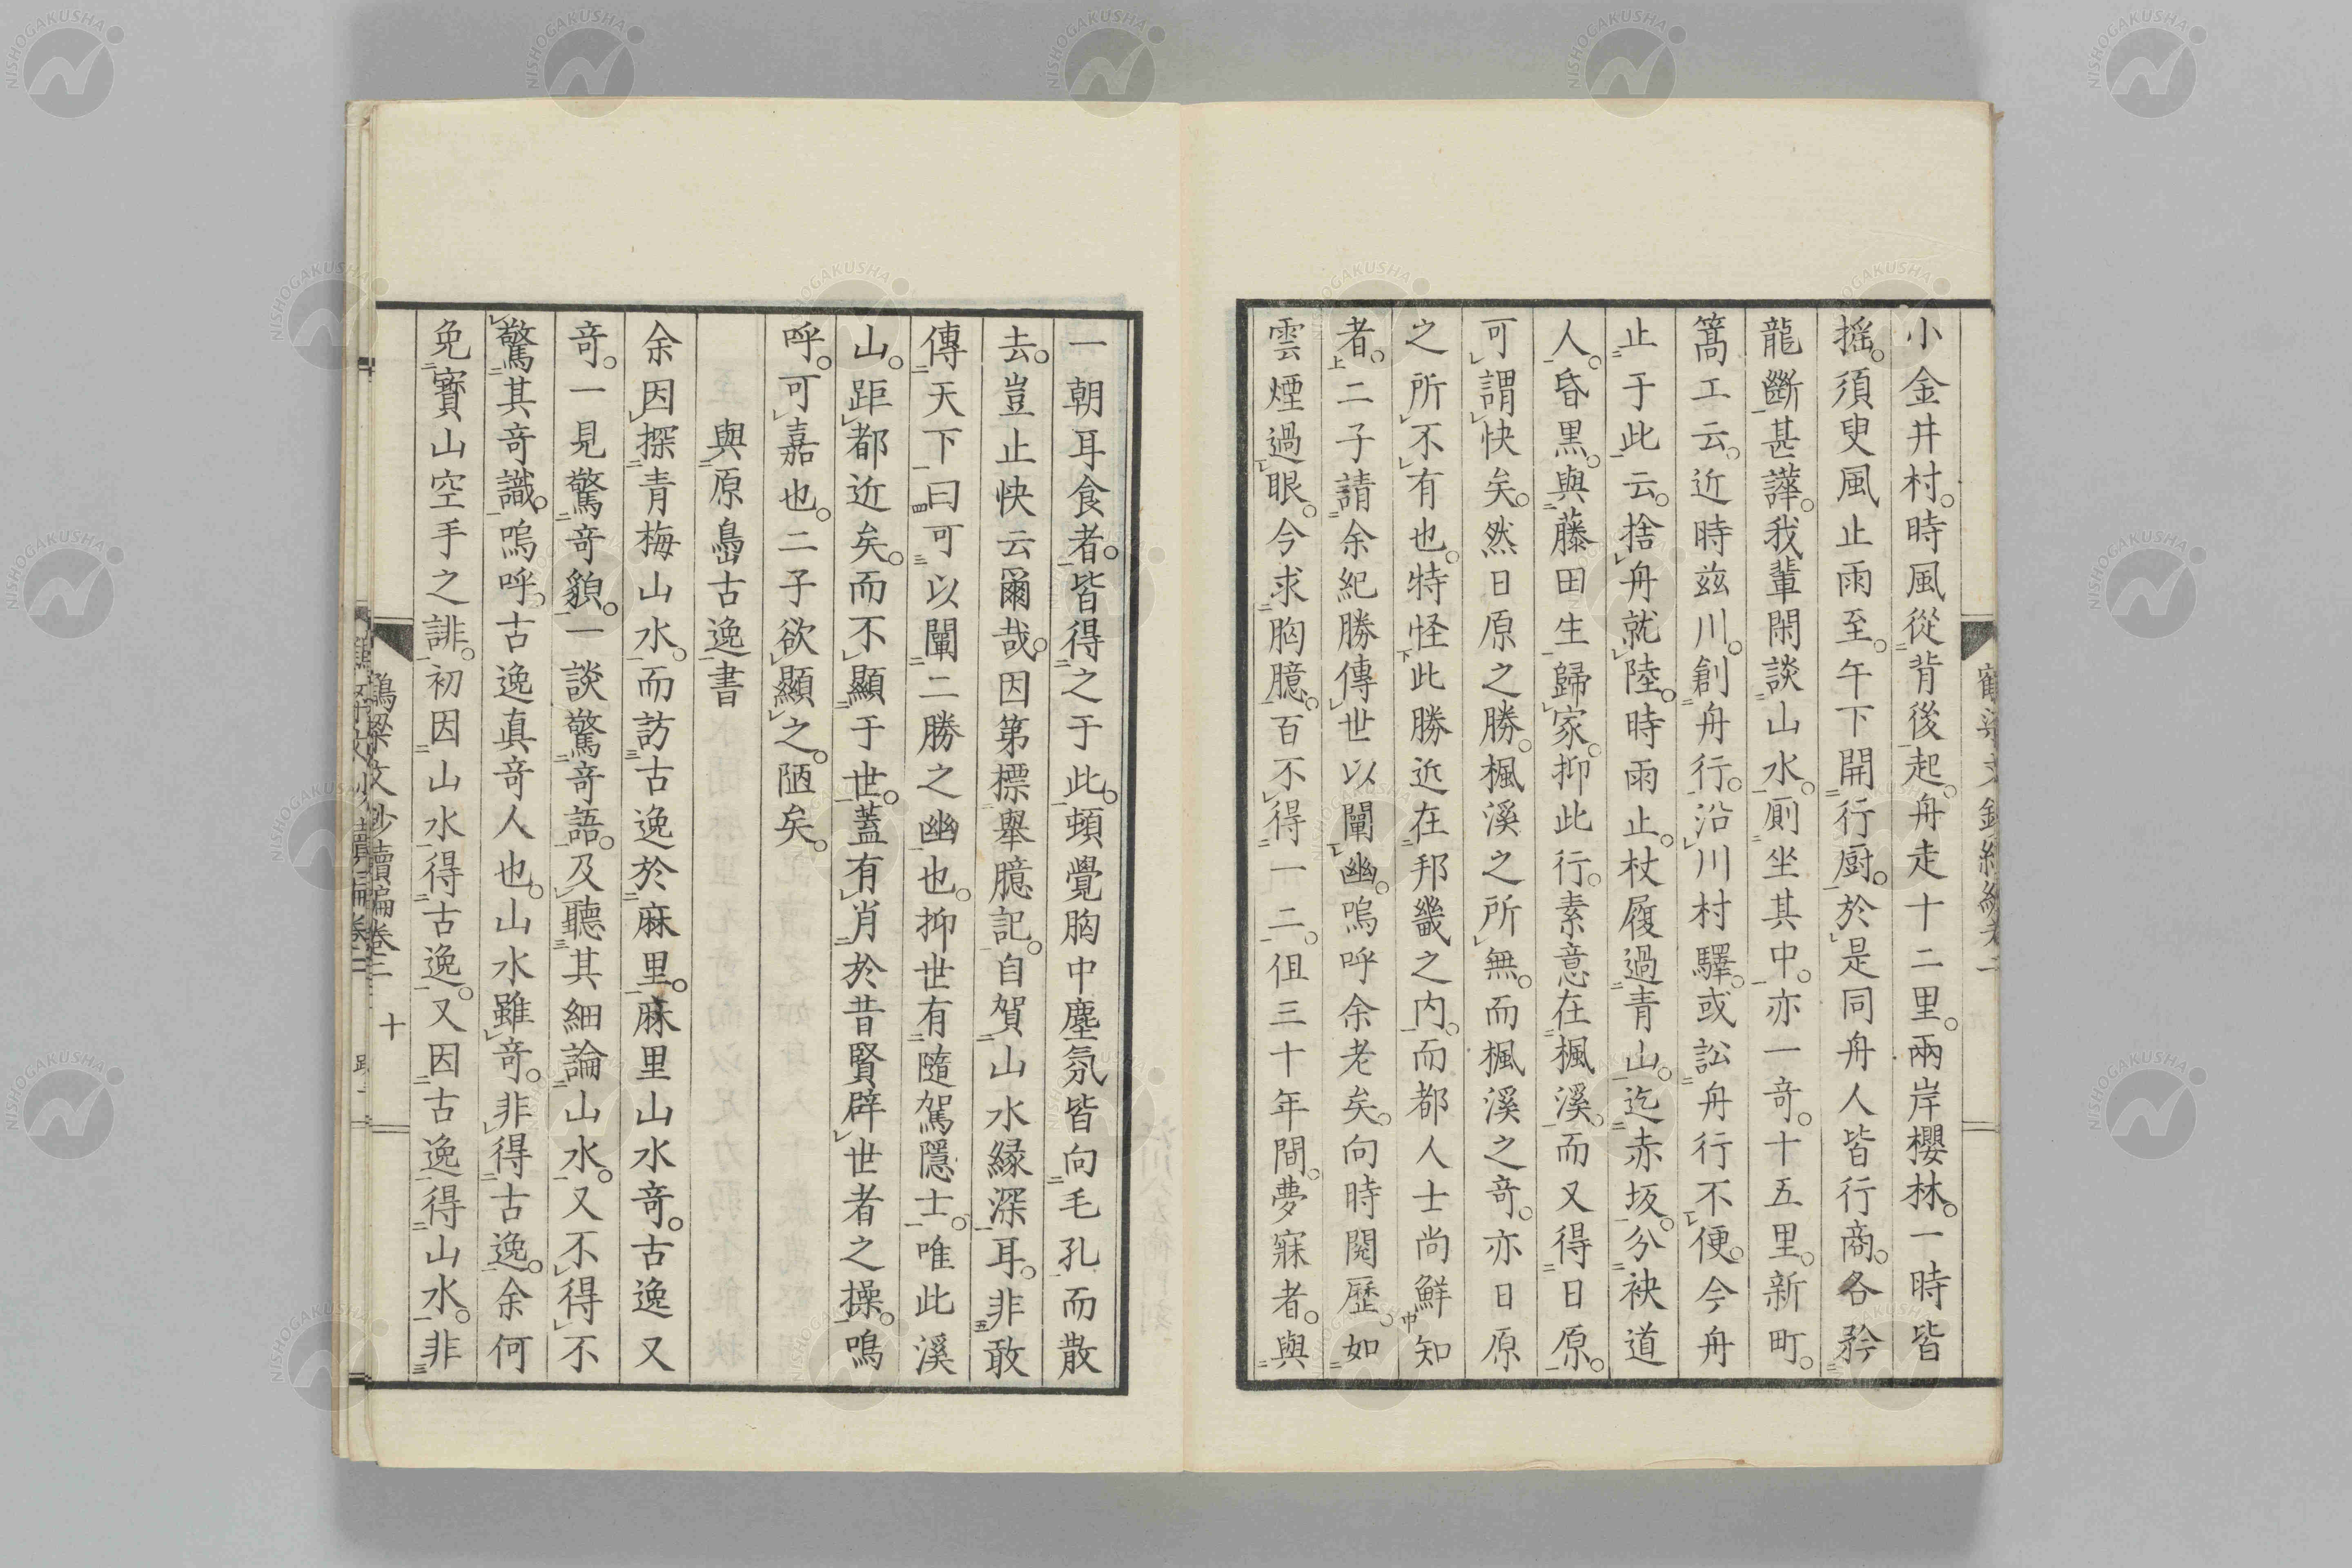 小金井村。時風從背後起。舟走十二里。兩岸櫻林。一時皆
搖。須臾風止雨至。午下開行厨。於是同舟人皆行商。各矜
龍斷甚譁。我輩閑談山水。厠坐其中。亦一奇。十五里。新町。
篙工云。近時玆川。創舟行。沿川村驛。或訟舟行不便。今舟
止于此云。捨舟就陸。時雨止。杖履過青山。迄赤坂。分袂道
人。昏黑。與藤田生歸家。抑此行。素意在楓溪。而又得日原。
可謂快矣。然日原之勝。楓溪之所無。而楓溪之奇。亦日原
之所不有也。特怪此勝近在邦畿之内。而都人士尚鮮知
者。二子請余紀勝傳世以闡幽。嗚呼余老矣。向時閱歷。如
雲煙過眼。今求胸臆。百不得一二。徂三十年間。夢寐者。與
一朝耳食者。皆得之于此。頓覺胸中塵氛皆向毛孔而散
去。豈止快云爾哉。因第標舉臆記。自賀山水緣深耳。非敢
傳天下曰可以闡二勝之幽也。抑世有隨駕隱士。唯此溪
山。距都近矣。而不顯于世。蓋有肖於昔賢辟世者之操。嗚
呼。可嘉也。二子欲顯之。陋矣。
與原島古逸書
余因探青梅山水。而訪古逸於麻里。麻里山水奇。古逸又
奇。一見驚奇貌。一談驚奇語。及聽其細論山水。又不得不
驚其奇識。嗚呼。古逸真奇人也。山水雖奇。非得古逸。余何
免寶山空手之誹。初因山水得古逸。又因古逸得山水。非
鶴梁文鈔續編卷二 十